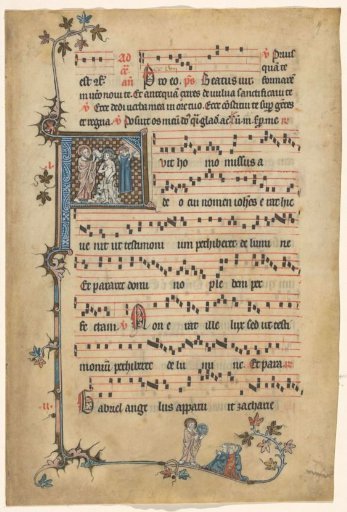 est R℣ Ad an Pro eo. ps Beatus vir. ℣ Prius quā te formarē
in utero noui te. Et antequā exires de uulua sanctificaui te
℣ Ecce dedi uerba mea in ore tuo. Ecce cōstitui te sup gētes
et regna. ℣ Posuit os meū
uit ho mo missus a
de o cui nomen iohēs e rat hic
ue nit ut testimoni um perhiberet de lumi ne
Et pararet domi no ple bem per
fe ctam. ℣ Non e rat ille lux sed ut testi
moniū perhiberet de lu mi ne. Et para
Gabriel ange lus apparu it zacharie